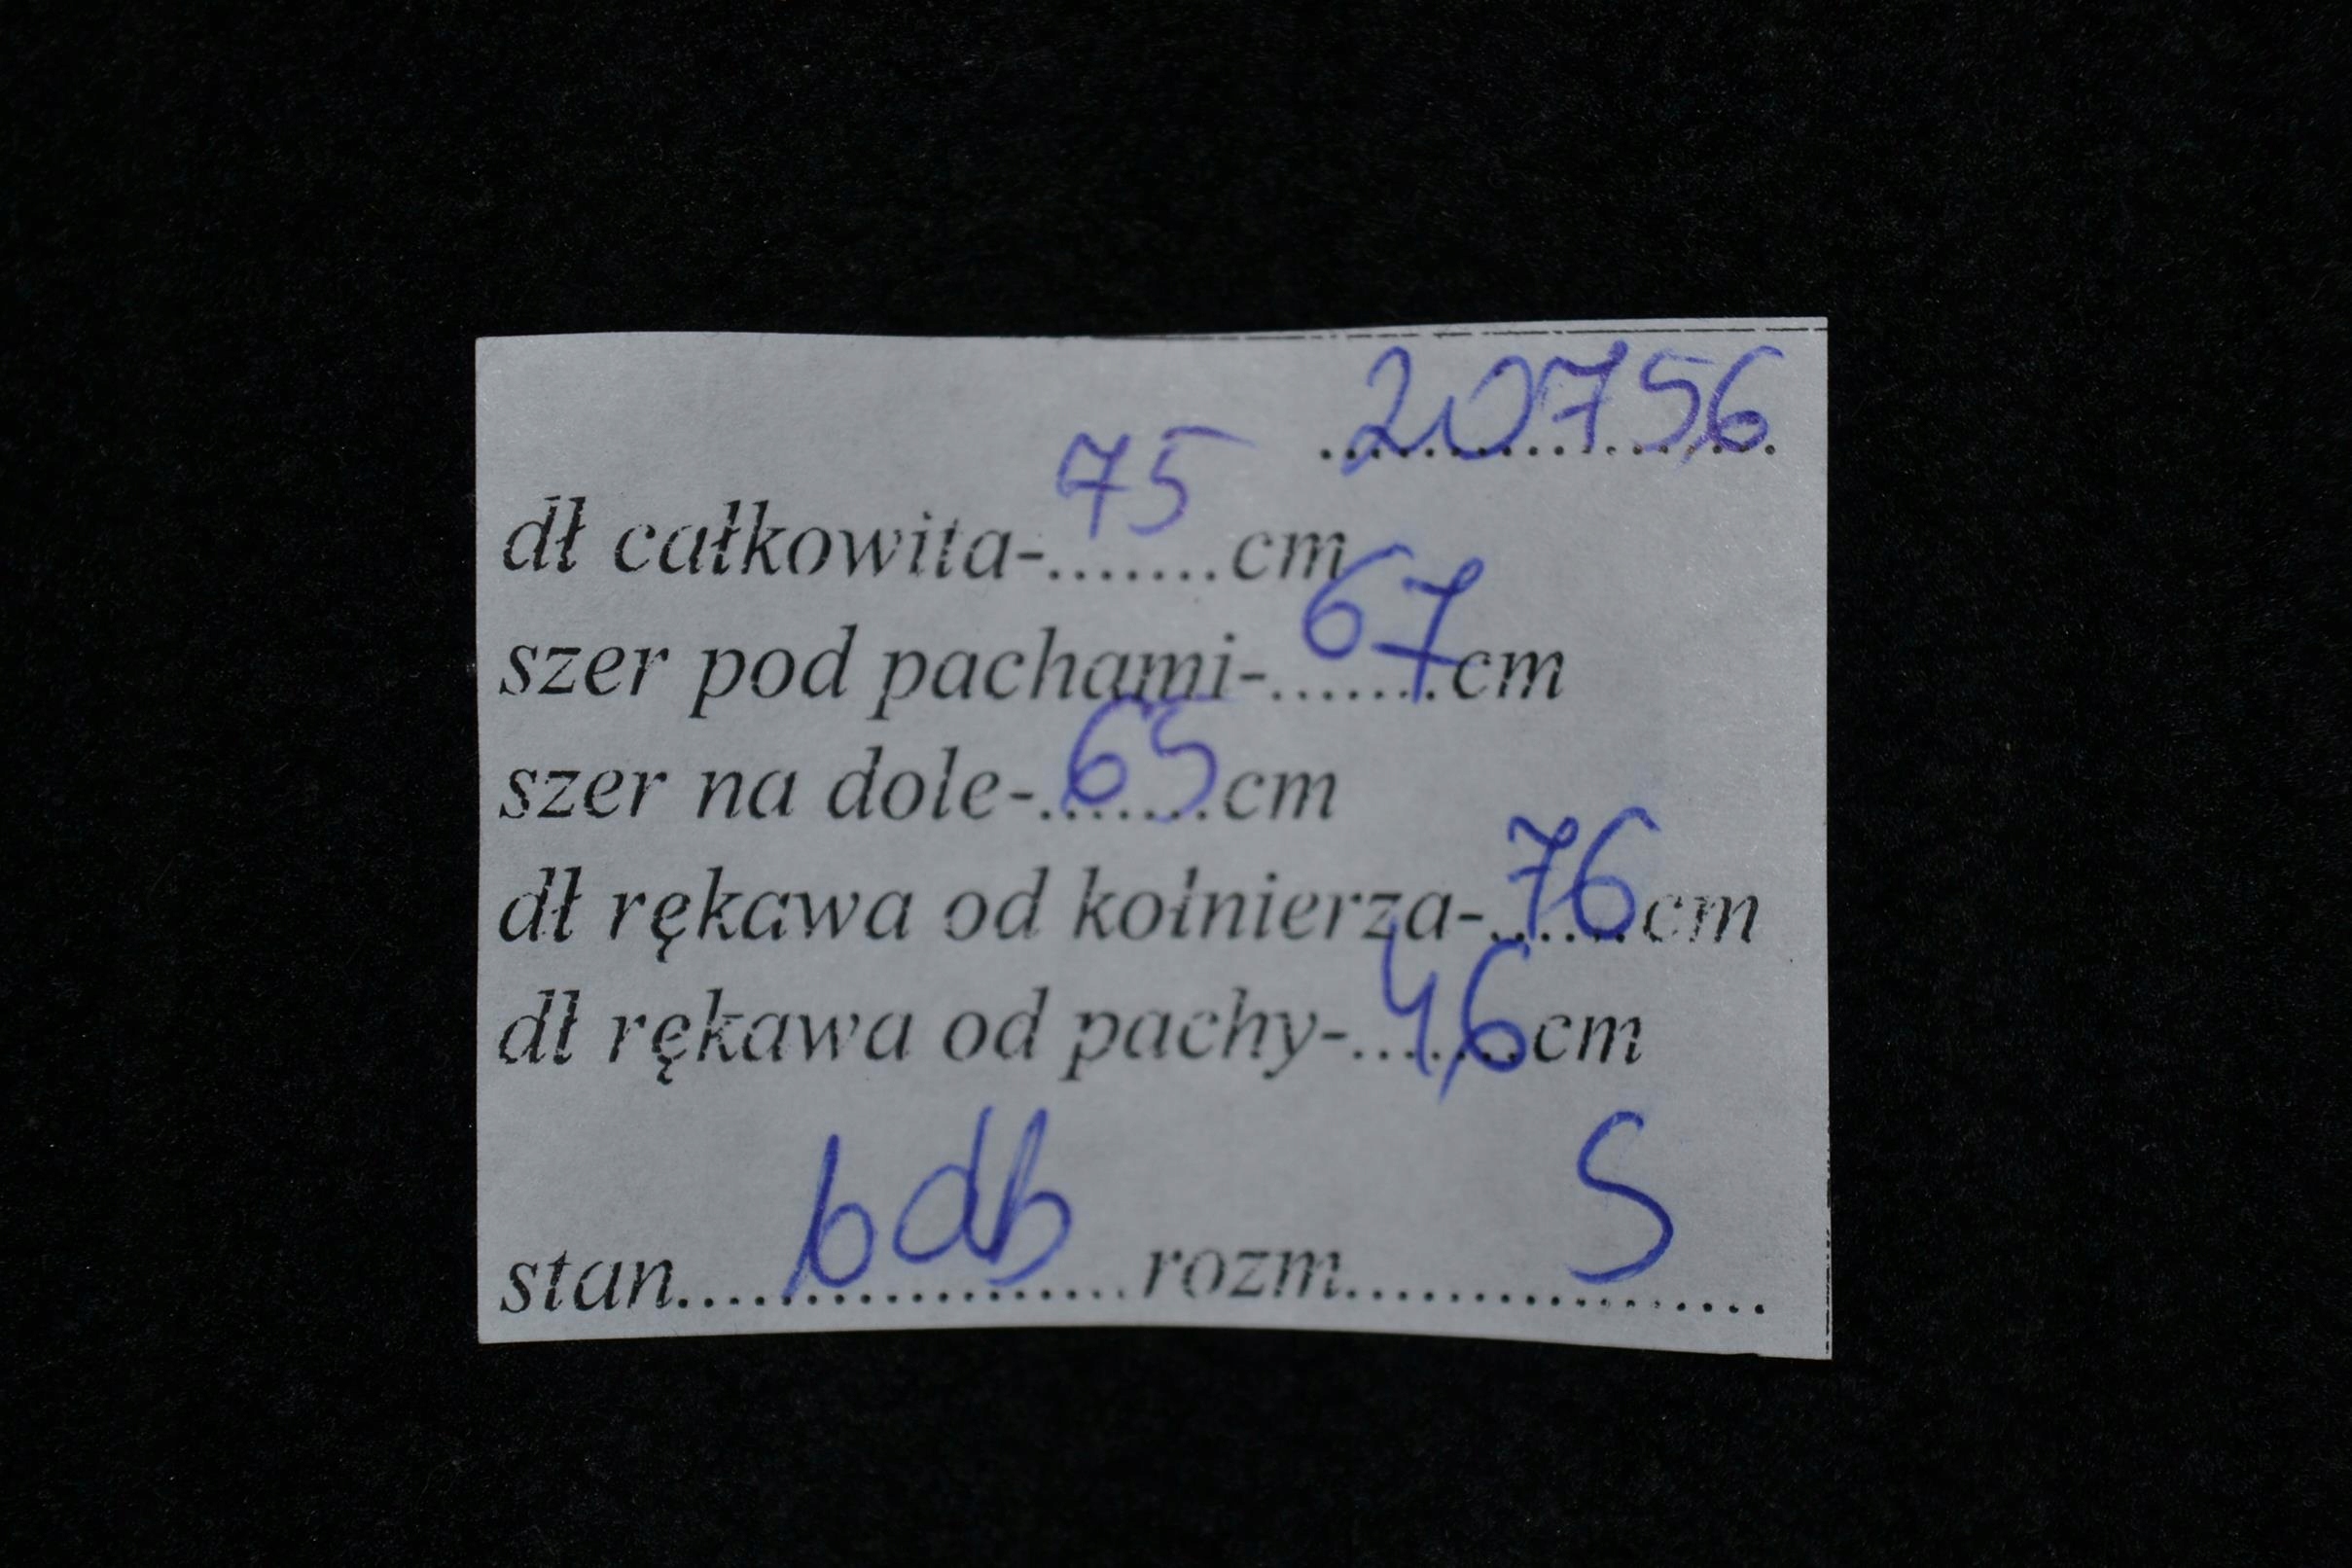 20756
dł całkowita-75cm
szer pod pachami-67cm
szer na dole-65cm
dł rękawa od kołnierza-76cm
dł rękawa od pachy-46cm
stan....bdb....rozm....S....